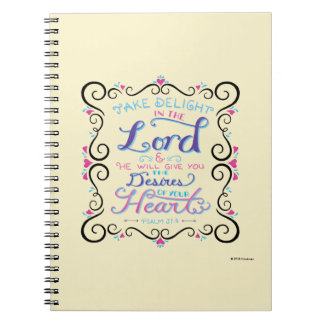 TAKE DELIGHT
IN THE
Lord
&
HE WILL GIVE YOU
THE
Desires
OF YOUR
Heart
PSALM 37:4